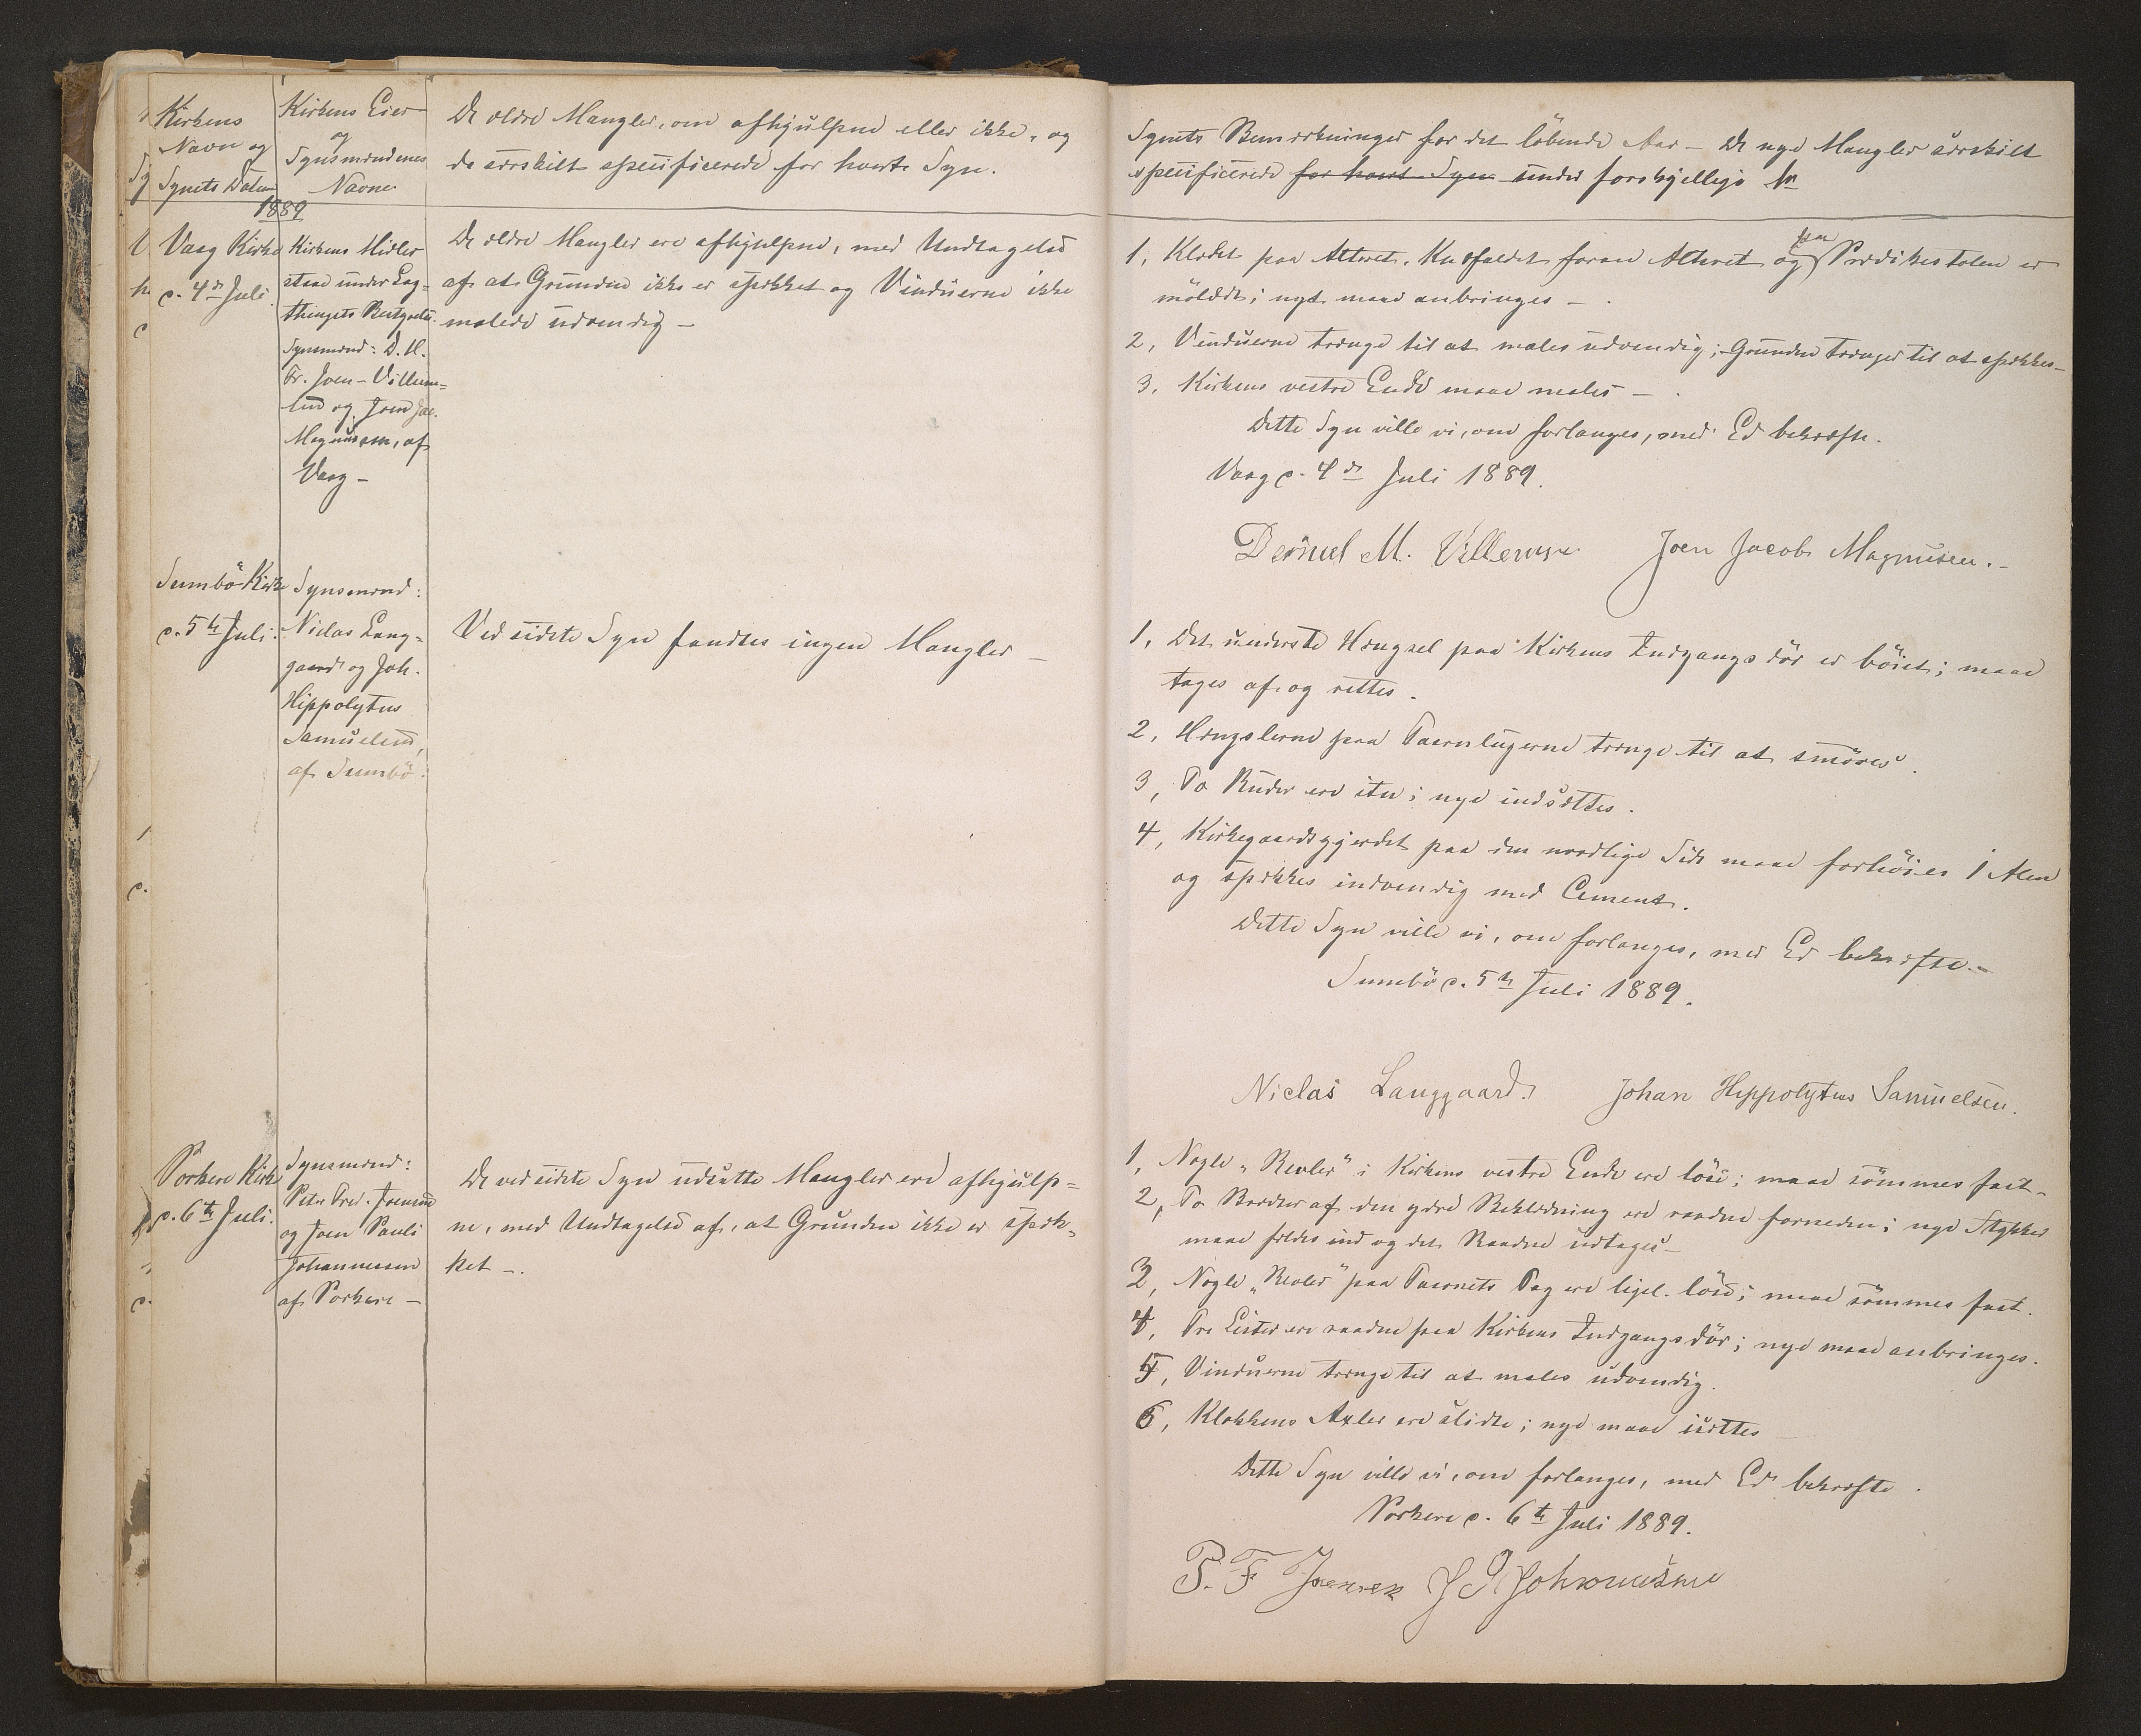 Kirkens
Navn og
Synets Datum
Kirkens Eier
og
Synsmændenes
Navne
De ældre Mangler, om afhjulpne eller ikke, og
de særskilt specificerede for hvert Syn.
1889
Vaag Kirke
d. 4de Juli
Kirkens Midler
staae under Lag=
thingets Bestyrelse.
Synsmænd: D. M.
Fr. Joen - Villum=
sen og Joen Jac.
Magnussen, af
Vaag -
De ældre Mangler ere afhjulpne, med Undtagelse
af at Grunden ikke er spækket og Vinduerne ikke
malede udvendig -
Sumbö Kirke
d. 5te Juli.
Synsmænd:
Niclas Lang=
gaard og Joh.
Hippolytus
Samuelsen,
af Sumbö.
Ved sidste Syn fandtes ingen Mangler -
Porkere Kirke
d. 6te Juli.
Synsmænd:
Peter Fred. Joensen
og Joen Pauli
Johannessen
af Porkere -
De ved sidste Syn udsatte Mangler ere afhjulp=
ne, med Undtagelse af, at Grunden ikke er spæk=
ket -.
Synets Bemærkninger for det löbende Aar - De nye Mangler særskilt
specificerede for hvert Syn under forskjellige Nr
1, Klædet paa Alteret, Knæfaldet foran Alteret og paa Prædikestolen er
mölædt; nyt maae anbringes -.
2, Vinduerne trænge til at males udvendig; Grunden trænger til at spækkes -
3, Kirkens vestre Ende maae males -.
Dette Syn ville vi, om forlanges, med Ed bekræfte.
Vaag d. 4de Juli 1889.
Daniel M. Villumsen Joen Jacob Magnusen. -
1, Det underste Hængsel paa Kirkens Indgangsdör er böiet; maae
tages af og rettes.
2, Hængslerne paa Taarnlugerne trænge til at smöres.
3, To Ruder ere itu; nye indsættes.
4, Kirkegaardsgjerdet paa den nordlige Side maae forhöies 1 Alen
og spækkes indvendig med Cement.
Dette Syn ville vi, om forlanges, med Ed bekræfte. -
Sumbö d. 5te Juli 1889.
Niclas Langgaard. Johan Hippolytus Samuelsen.
1, Nogle "Revler" i Kirkens vestre Ende ere löse; maae sömmes fast -
2, To Bredder af den ydre Beklædning ere raadne forneden; nye Stykker
maae fældes ind og det Raadne udtages -
3, Nogle "Revler" paa Taarnets Tag ere ligel. löse; maae sömmes fast.
4, Tre Lister ere raadne paa Kirkens Indgangsdör; nye maae anbringes.
5, Vinduerne trænge til at males udvendig.
6, Klokkens Axler ere slidte; nye maae isættes -
Dette Syn ville vi, om forlanges, med Ed bekræfte.
Porkere d. 6te Juli 1889.
P. F Joensen J P Johannesen